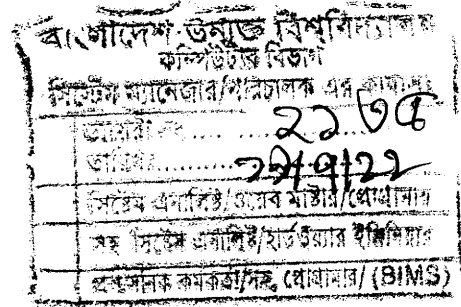 বাংলাদেশ উন্মুক্ত বিশ্ববিদ্যালয়
কম্পিউটার বিভাগ
সিস্টেম ম্যানেজার/পরিচালক এর কার্যালয়
ডায়েরী নং......
তারিখ..........
সিস্টেম এনালিস্ট/ওয়েব মাস্টার/প্রোগ্রামার
সহ সিস্টেম এনালিস্ট/হার্ডওয়্যার ইঞ্জিনিয়ার
প্রশাসনিক কর্মকর্তা/সহ. প্রোগ্রামার/ (BIMS)